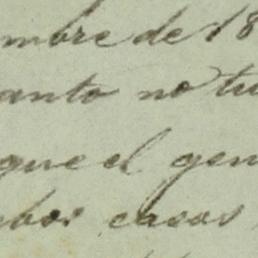 mbre de 18
anto no tu
que el gen
chos casos